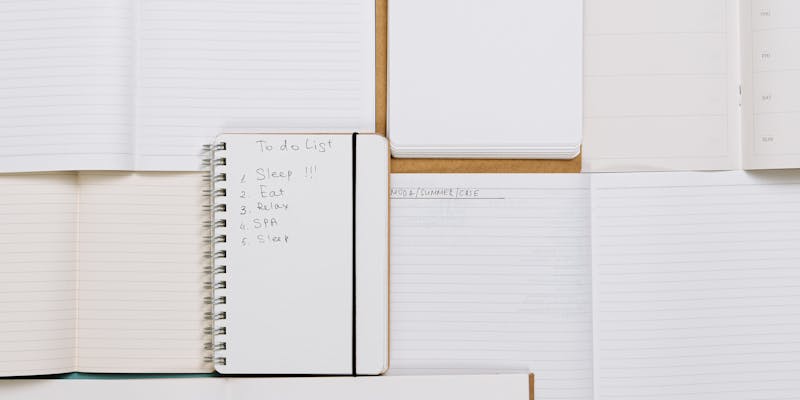 To do List
1. Sleep !!!
2. Eat
3. Relax
4. SPA
5. Sleep
MODA/SUMMER/CASE